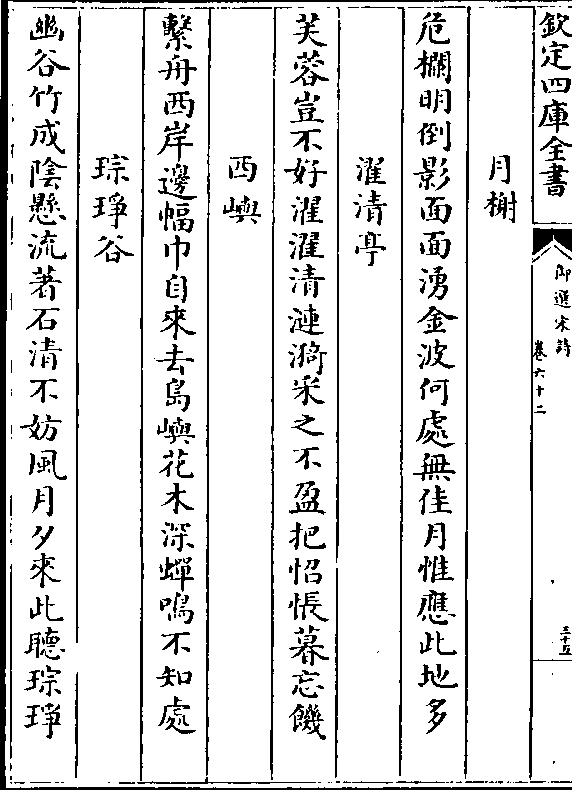 欽定四庫全書
御選宋詩
卷六十二
三十五
月榭
危欄明倒影面面湧金波何處無佳月惟應此地多
濯清亭
芙蓉豈不好濯濯清漣漪采之不盈把怊悵暮忘饑
西嶼
繫舟西岸邊幅巾自來去島嶼花木深蟬鳴不知處
琮琤谷
幽谷竹成陰懸流著石清不妨風月夕來此聽琮琤